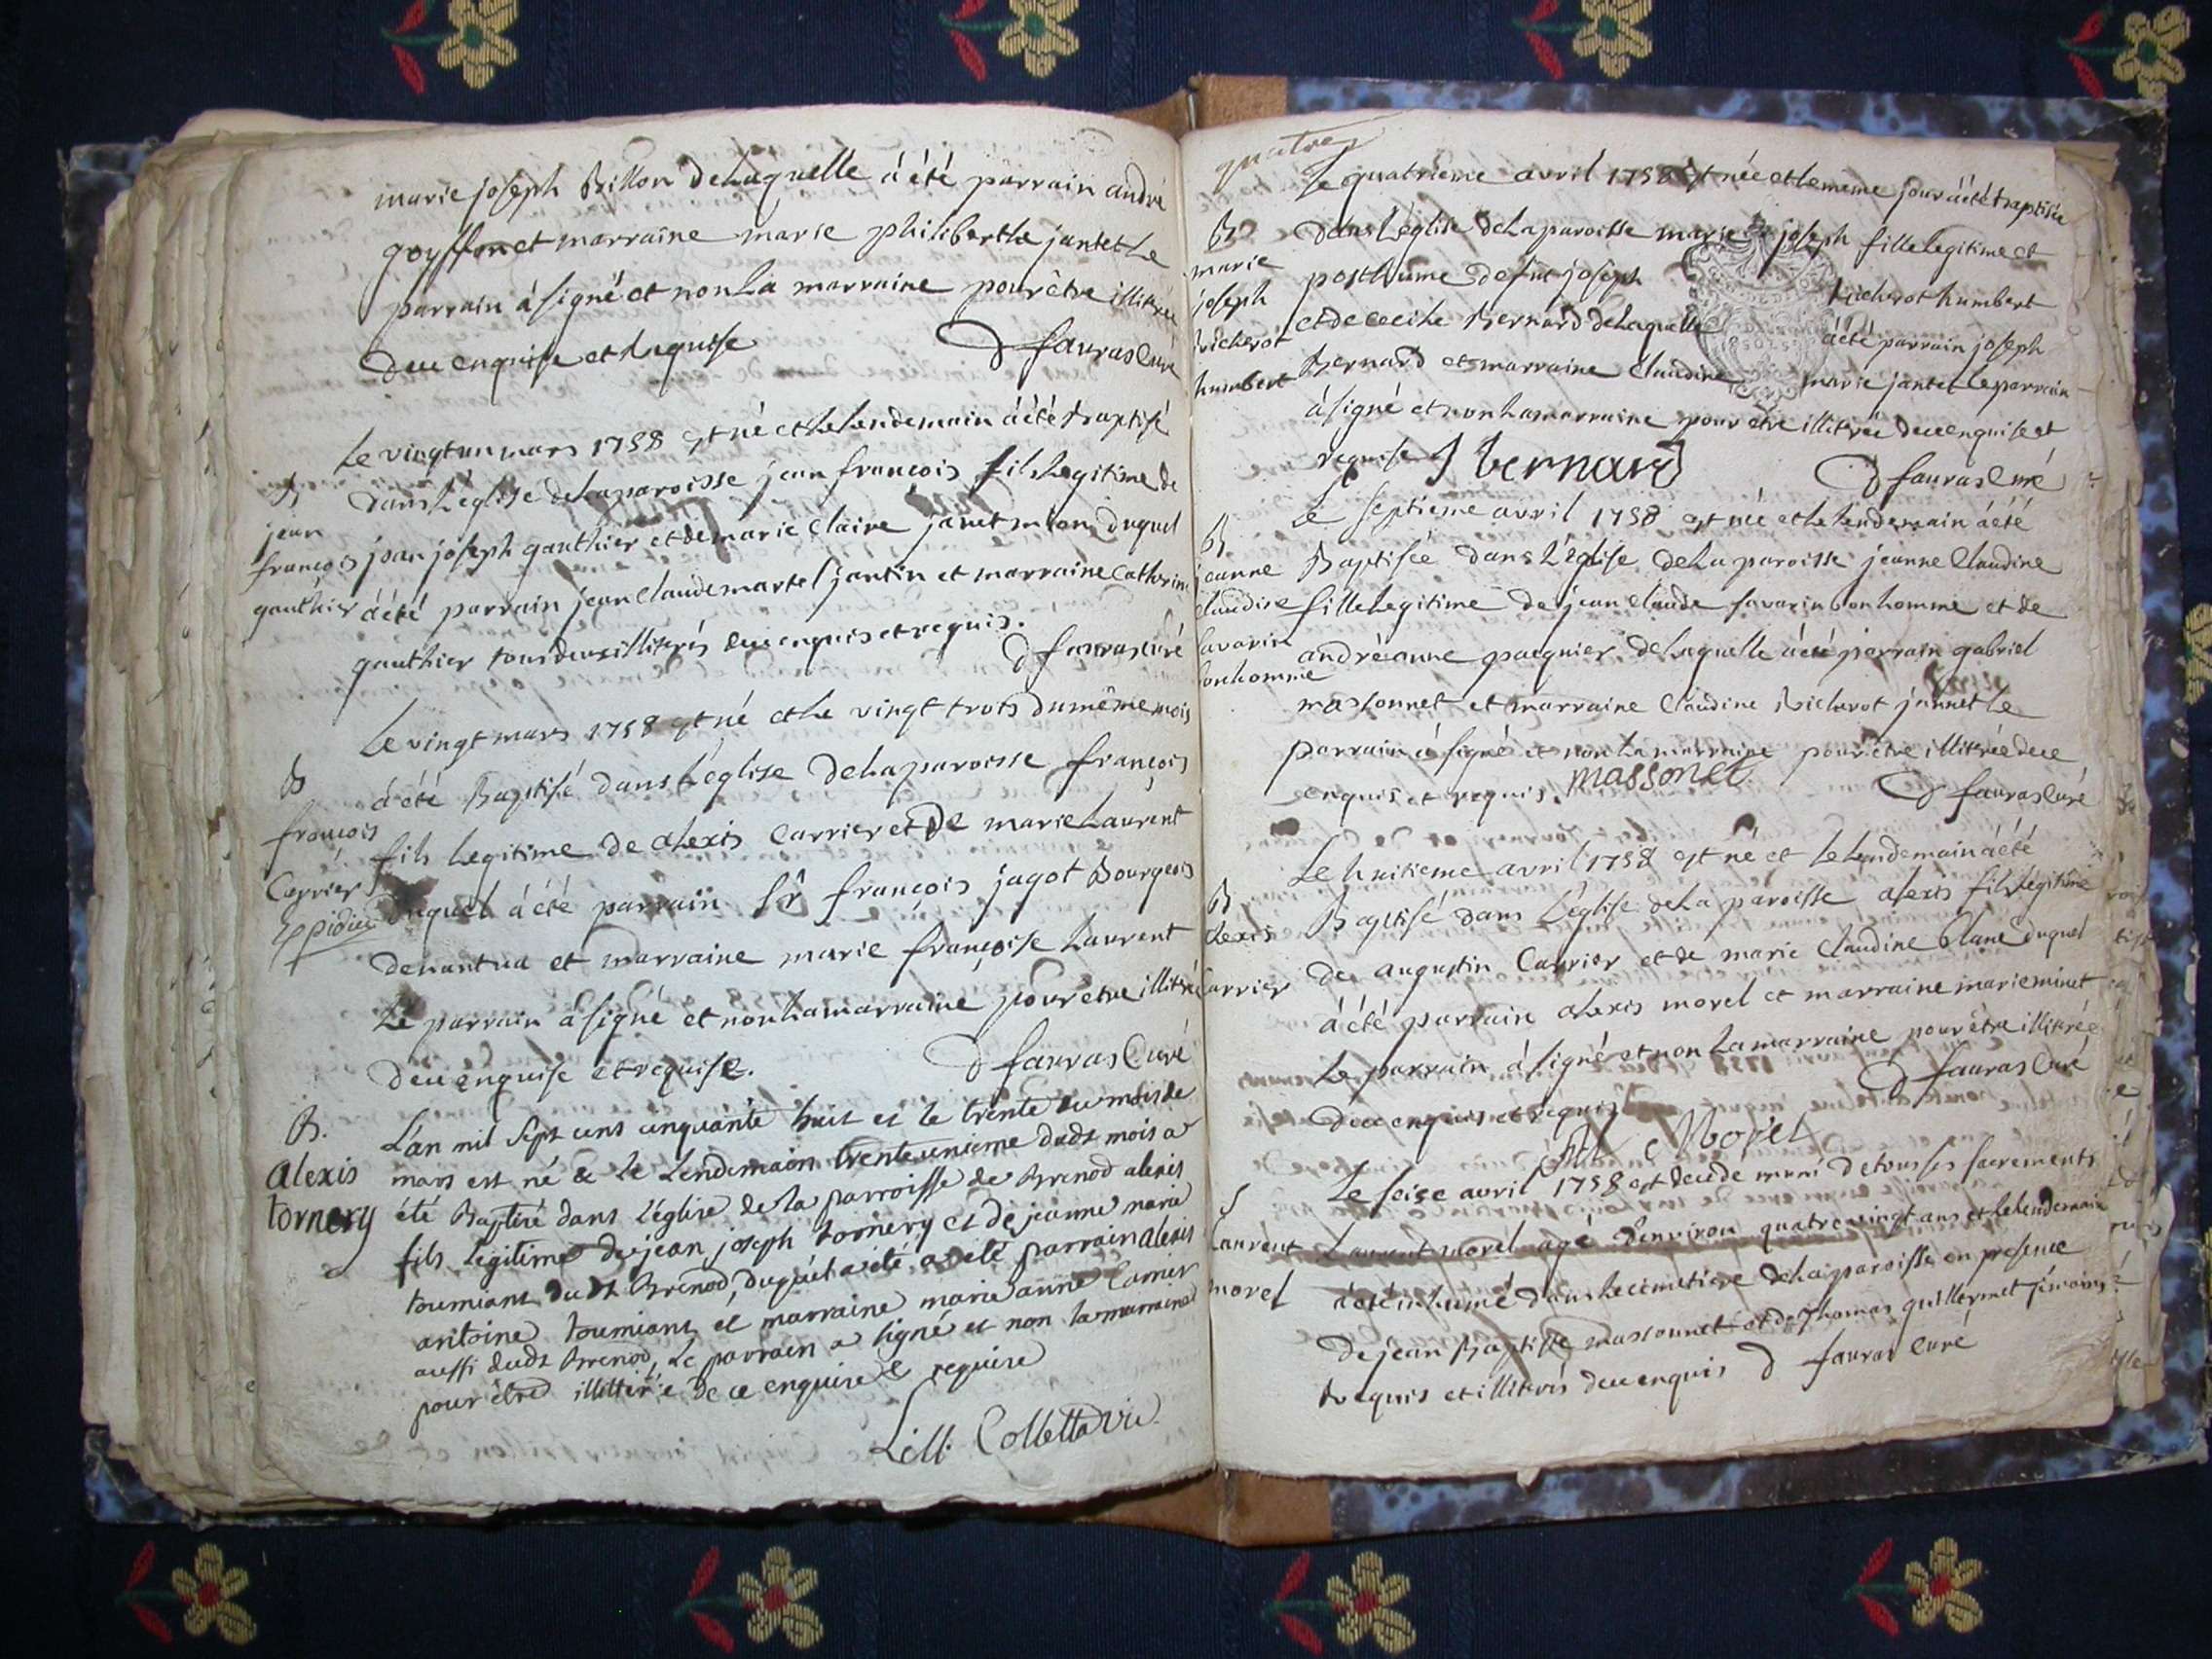 marie joseph Billon de laquelle á été parrain andré
goyffon et marraine marie philiberthe jantet le
parrain á signé et non la marraine pour être illitrée
de ce enquise et requise D favras Curé
Le vingt un mars 1758 est né et le lendemain á été baptisé
dans L'église de la paroisse jean françois fils legitime de
jean joseph gauthier et de marie claire janet mion duquel
á été parrain jean claude martel jantin et marraine Catherine
gauthier tous deux illitrés de ce enquis et requis.
D favras curé
B
jean
françois
gauthier
Le vingt mars 1758 est né et le vingt trois du même mois
á été Baptisé dans L'église de la paroisse françois
fils legitime de alexis Carrier et de marie Laurent
duquel á été parrain Sr françois jagot Bourgeois
de nantua et marraine marie françoise Laurent
Le parrain á signé et non la marraine pour etre illitrée
de ce enquise et requise.
D favras Curé
B
françois
Carrier
L'an mil sept cens cinquante huit et le trente du mois de
mars est né & le Lendemain trente unieme dudt mois a
été Baptisé dans l'église de la parroisse de Brenod alexis
fils legitime de jean joseph tornery et de jeanne marie
toumiant dudt Brenod, duquel a été a été parrain alexis
antoine toumiant et marraine marie anne Carrier
aussi dudt Brenod, Le parrain a signé et non la marraine
pour être illittérée de ce enquise & requise
Collet
B.
alexis
tornery
quatre
Le quatrieme avril 1758 est née et le meme jour á été baptisée
dans L'église de la paroisse marie joseph fille legitime et
posthume de fut joseph richerot humbert
et de cecile Bernard de laquelle á été parrain joseph
Bernard et marraine Claudine marie jantet le parrain
á signé et non la marraine pour etre illitrée de ce enquise et
requise J bernard
D favras Curé
B
marie
joseph
richerot
humbert
Le septieme avril 1758 est née et le lendemain á été
Baptisée dans L'église de la paroisse jeanne Claudine
fille legitime de jean claude savarin bonhomme et de
andréanne pacquier de laquelle á été parrain gabriel
massonnet et marraine Claudine richerot jannet le
parrain á signé et non la marraine pour etre illitrée de ce
enquis et requis. massonet
D favras Curé
B
jeanne
claudine
savarin
bonhomme
Le huitieme avril 1758 est né et le lendemain á été
Baptisé dans L'église de la paroisse alexis fils legitime
de augustin Carrier et de marie Claudine Blanc duquel
á été parrain alexis morel et marraine marie minet
Le parrain á signé et non la marraine pour être illitrée
de ce enquis et requis
D favras Curé
Morel
B
alexis
Carrier
Le seise avril 1758 est decedé muni de tous ses sacrements
Laurent morel agé d'environ quatre vingt ans et le lendemain
á été inhumé dans le cemetiere de la paroisse en presence
de jean Baptiste massonnet et de thomas guillermet témoins
requis et illitrés de ce enquis D favras Curé
S
Laurent
morel